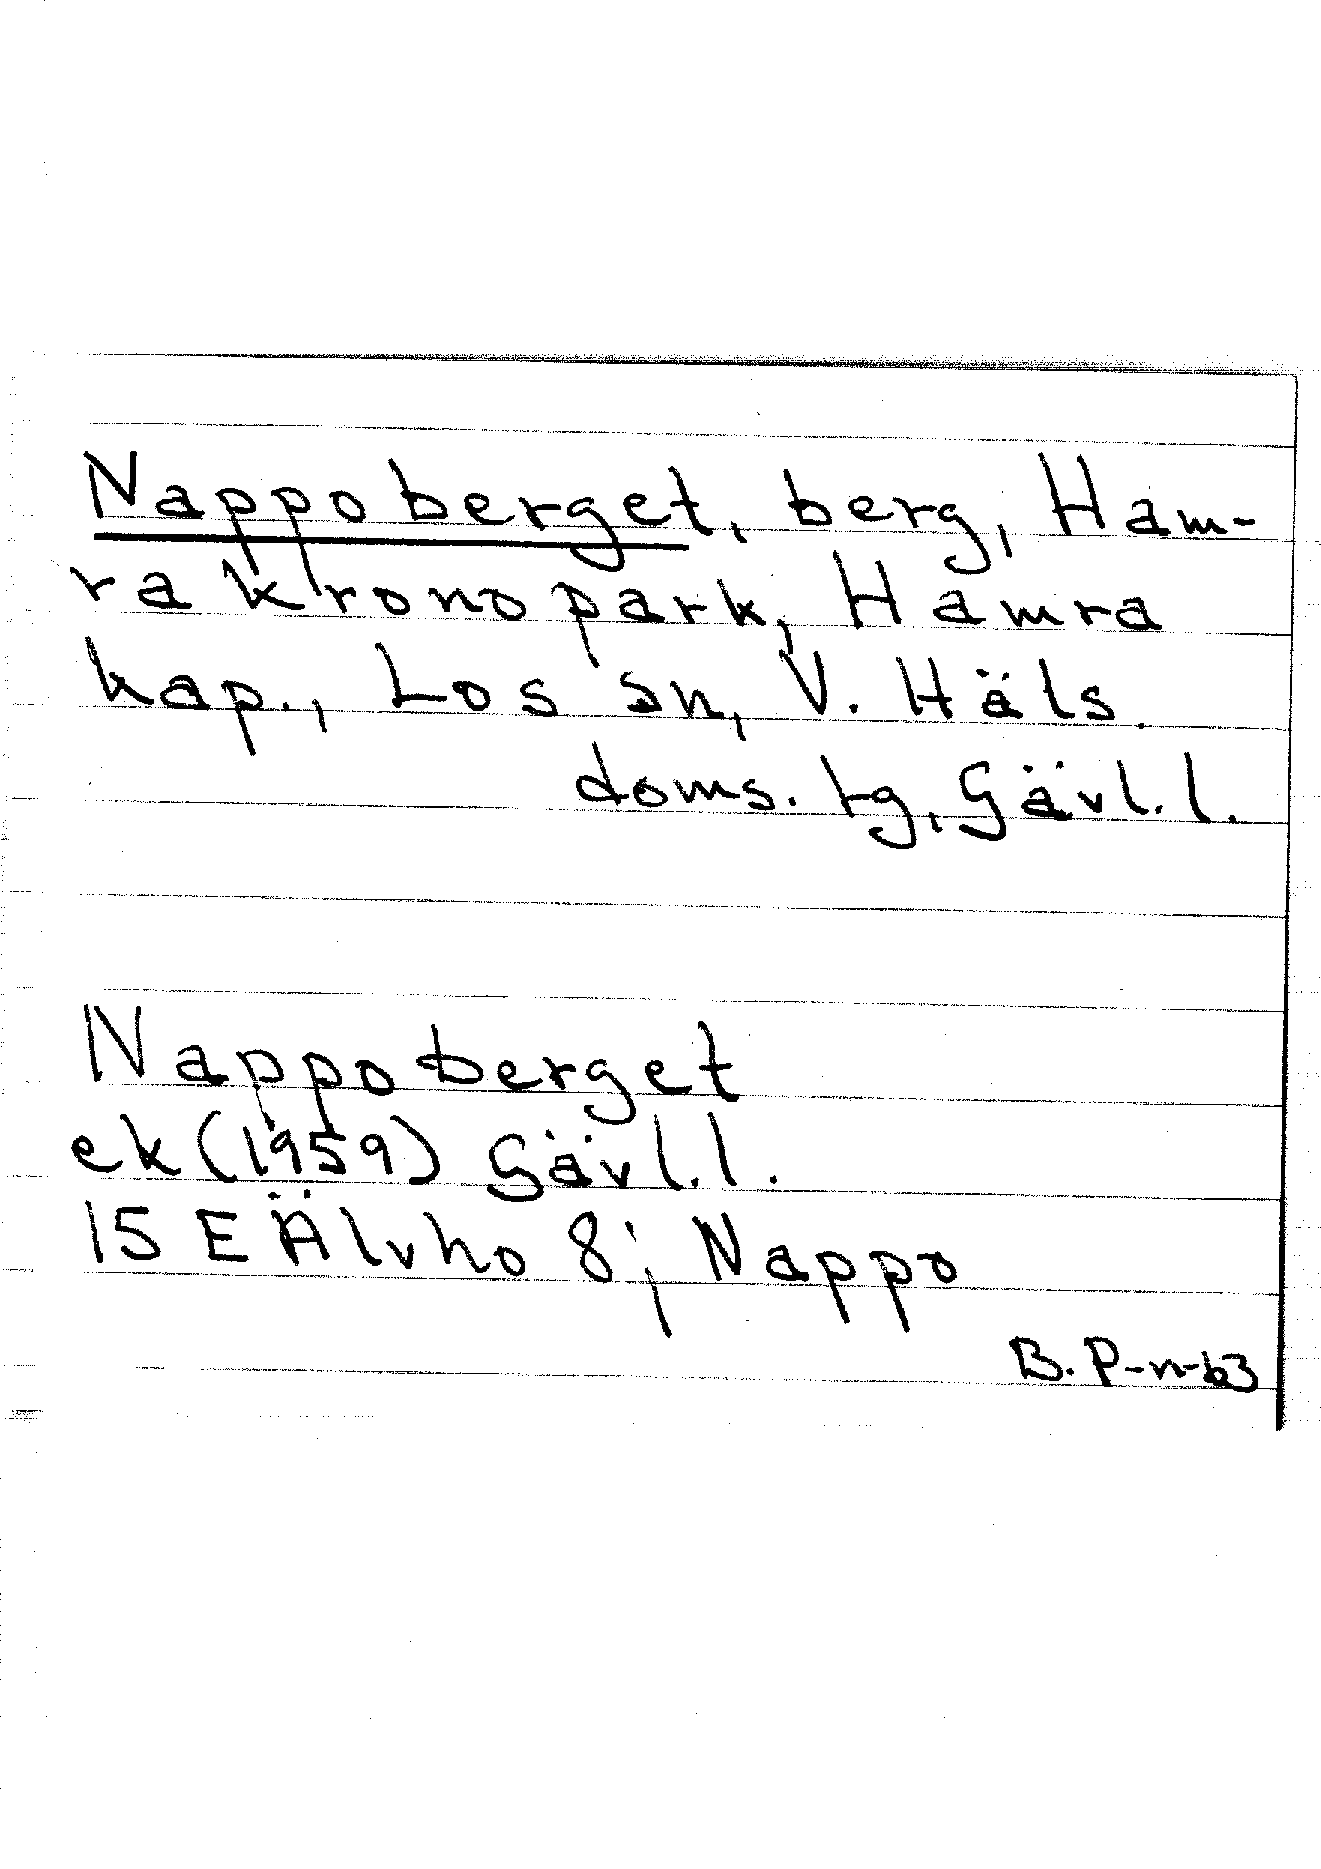 Nappoberget, berg, Ham-
ra kronopark, Hamra
kap., Los sn, V. Häls.
doms. tg, Gävl. l.
Nappoberget
ek (1959) Gävl. l.
15 E Älvho 8; Nappo
B. P-n-63